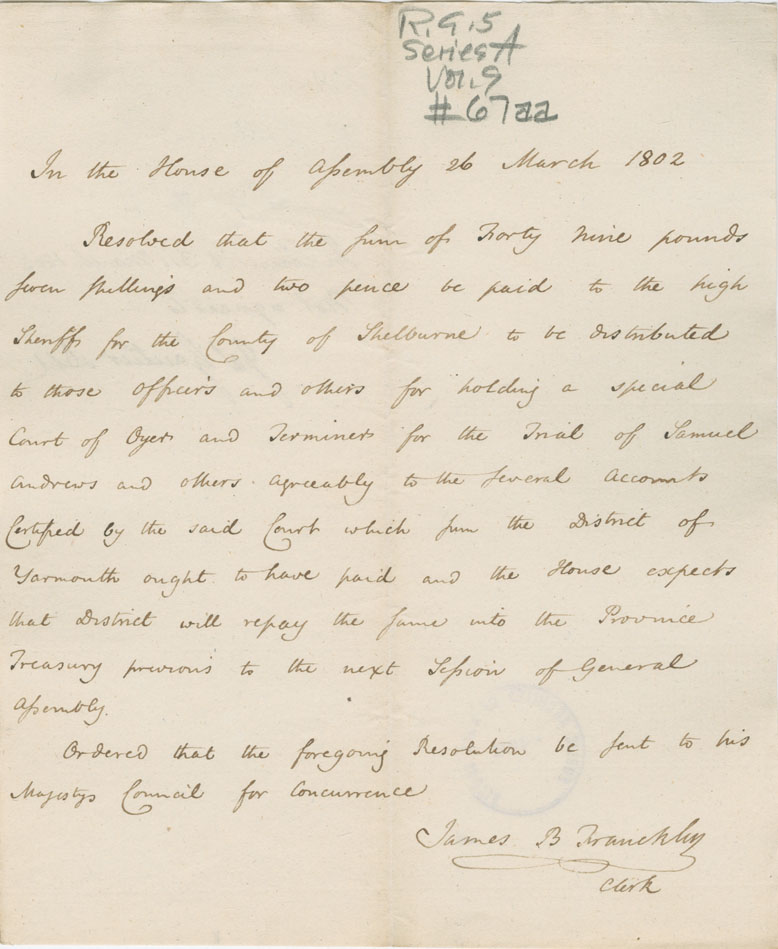 R.G.5
Series A
Vol. 9
# 67aa
In the House of Assembly 26 March 1802
Resolved that the sum of Forty Nine pounds
seven shillings and two pence be paid to the high
Sheriff for the County of Shelburne to be distributed
to those officers and others for holding a special
Court of Oyer and Terminer for the Trial of Samuel
Andrews and others agreeably to the several Accounts
Certified by the said Court which sum the District of
Yarmouth ought to have paid and the House expects
that District will repay the same into the Province
Treasury previous to the next Session of General
Assembly.
Ordered that the foregoing Resolution be sent to his
Majestys Council for Concurrence
James B Franckly
Clerk